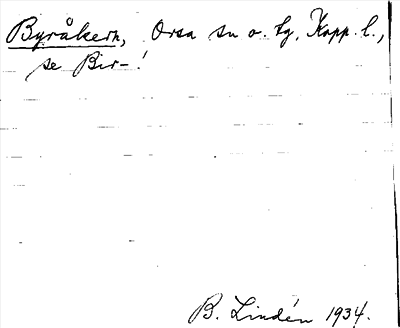 Byråkern, Orsa sn o. tg, Kopp. l.,
se Bir-!
B. Lindén 1934.